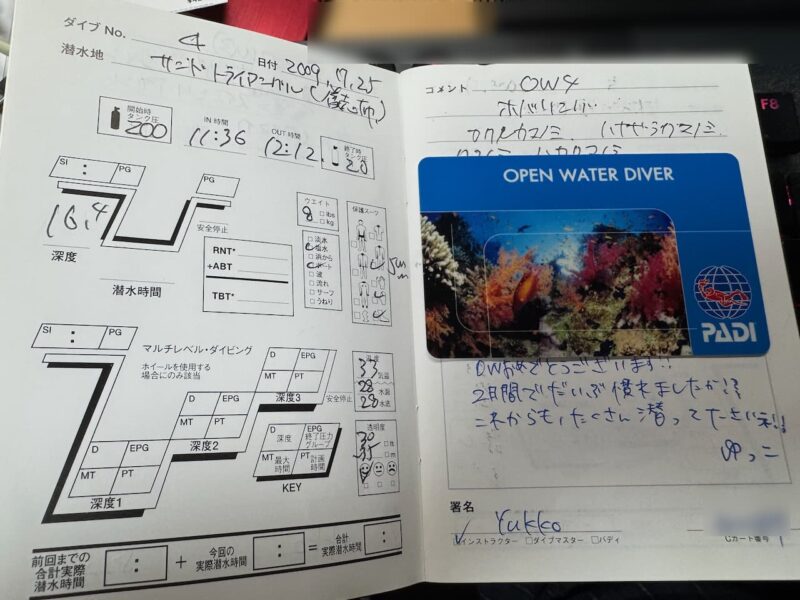 ダイブ No. 4
潜水地 サンドトライアングル( 日付 2009.17.25
開始時
タンク圧
200
IN 時間
11:36
OUT 時間
12:12
終了時
タンク圧
20
SI : PG
PG
16.4
深度
安全停止
潜水時間
RNT*
+ABT
TBT*
ウエイト
8 □lbs
□kg
保護スーツ
5mm
□淡水
塩水
□浜から
ボート
□波
□流れ
□サーフ
□うねり
マルチレベル・ダイビング
ホイールを使用する
場合にのみ該当
SI : PG
D EPG
MT PT
深度1
D EPG
MT PT
深度2
D EPG
MT PT
深度3
安全停止
D EPG
深度 終了圧力グループ
MT PT
最大時間 計画時間
KEY
温度
33 気温
28 水温
28 水底
透明度
30
35
□ft
□m
前回までの
合計実際
潜水時間
:
+
今回の
実際潜水時間
:
=
合計
実際潜水時間
:
コメント OW4
ホバリング
カクレクマノミ ハマクマノミ
OPEN WATER DIVER
PADI
OWおめでとうございます!!
2日間でだいぶ慣れましたか!?
これからも,たくさん潜って下さいネ!!
ゆっこ
署名
Yukko
インストラクター □ダイブマスター □バディ
Cカート番号
F8